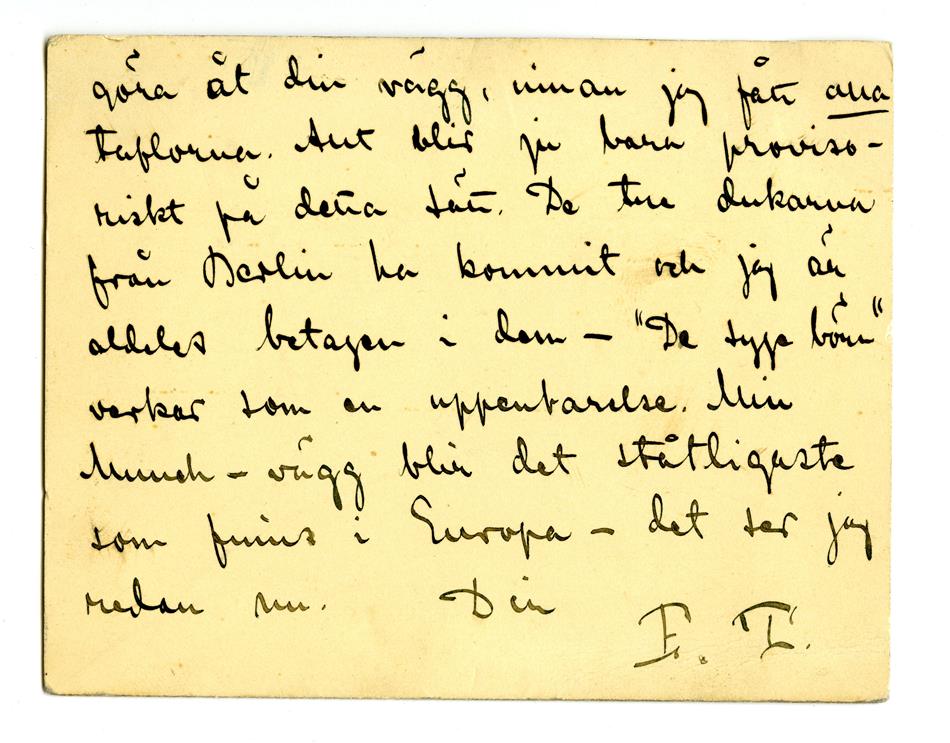 göra åt din vägg, innan jag fått alla
taflorna. Allt blir ju bara proviso-
riskt på detta sätt. De tre dukarna
från Berlin ha kommit och jag är
aldeles betagen i dem – "De syge börn"
verkar som en uppenbarelse. Min
Munch – vägg blir det ståtligaste
som finns i Europa – det ser jag
redan nu. Din
E. T.